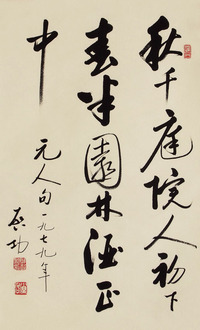 秋千庭院人初下
春半園林酒正
中
元人句一九七九年
啟功